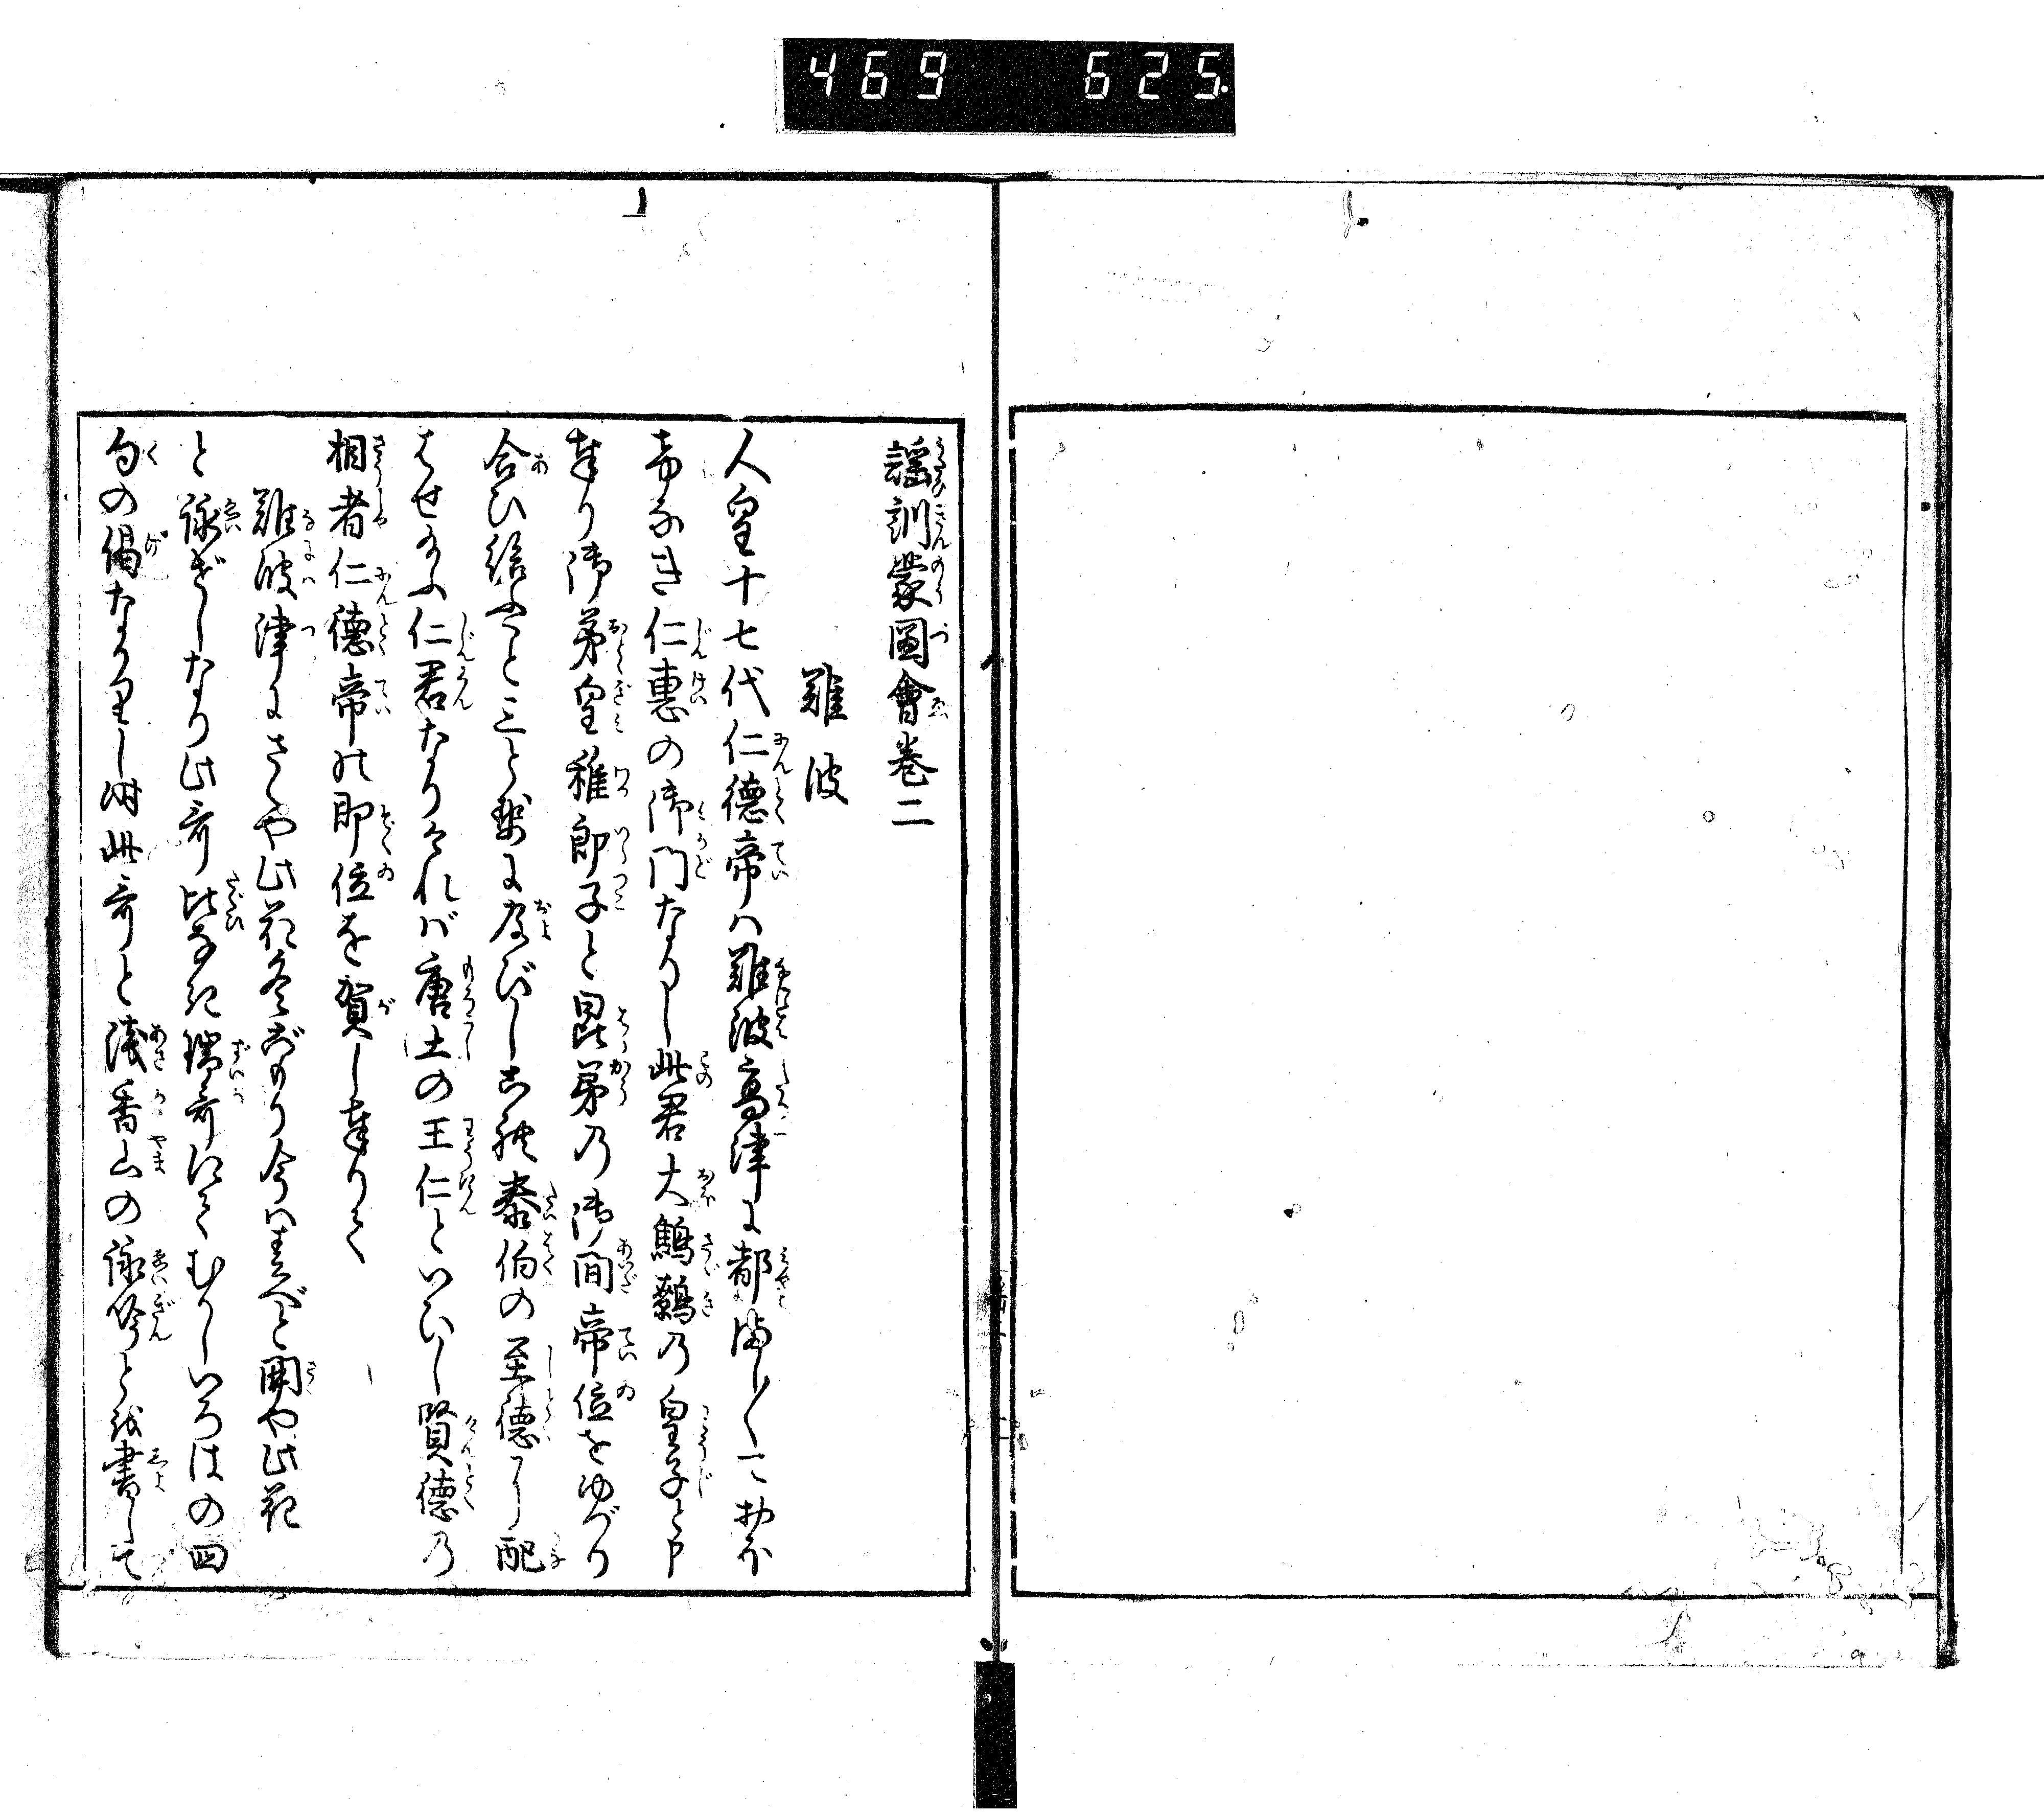 469 625
謡訓蒙圖會巻二
難波
人皇十七代仁徳帝ハ難波高津に都ましまして
帝なき仁惠の御門なりし此君大鷦鷯乃皇子と申
奉り御弟皇稚郎子と昆弟乃御間帝位をゆづり
合ひ給ふこと三とせに及びし
泰伯の至徳
配
仁君なりければ唐土の王仁といひし賢徳乃
相者仁徳帝の即位を賀し奉りて
難波津にさくや此花冬ごもり今ハ春べと開や此花
と詠ぜしなり此哥比なき瑞哥にてむかしいろはの四
句の偈なかりし時此哥と浅香山の詠吟とを書して